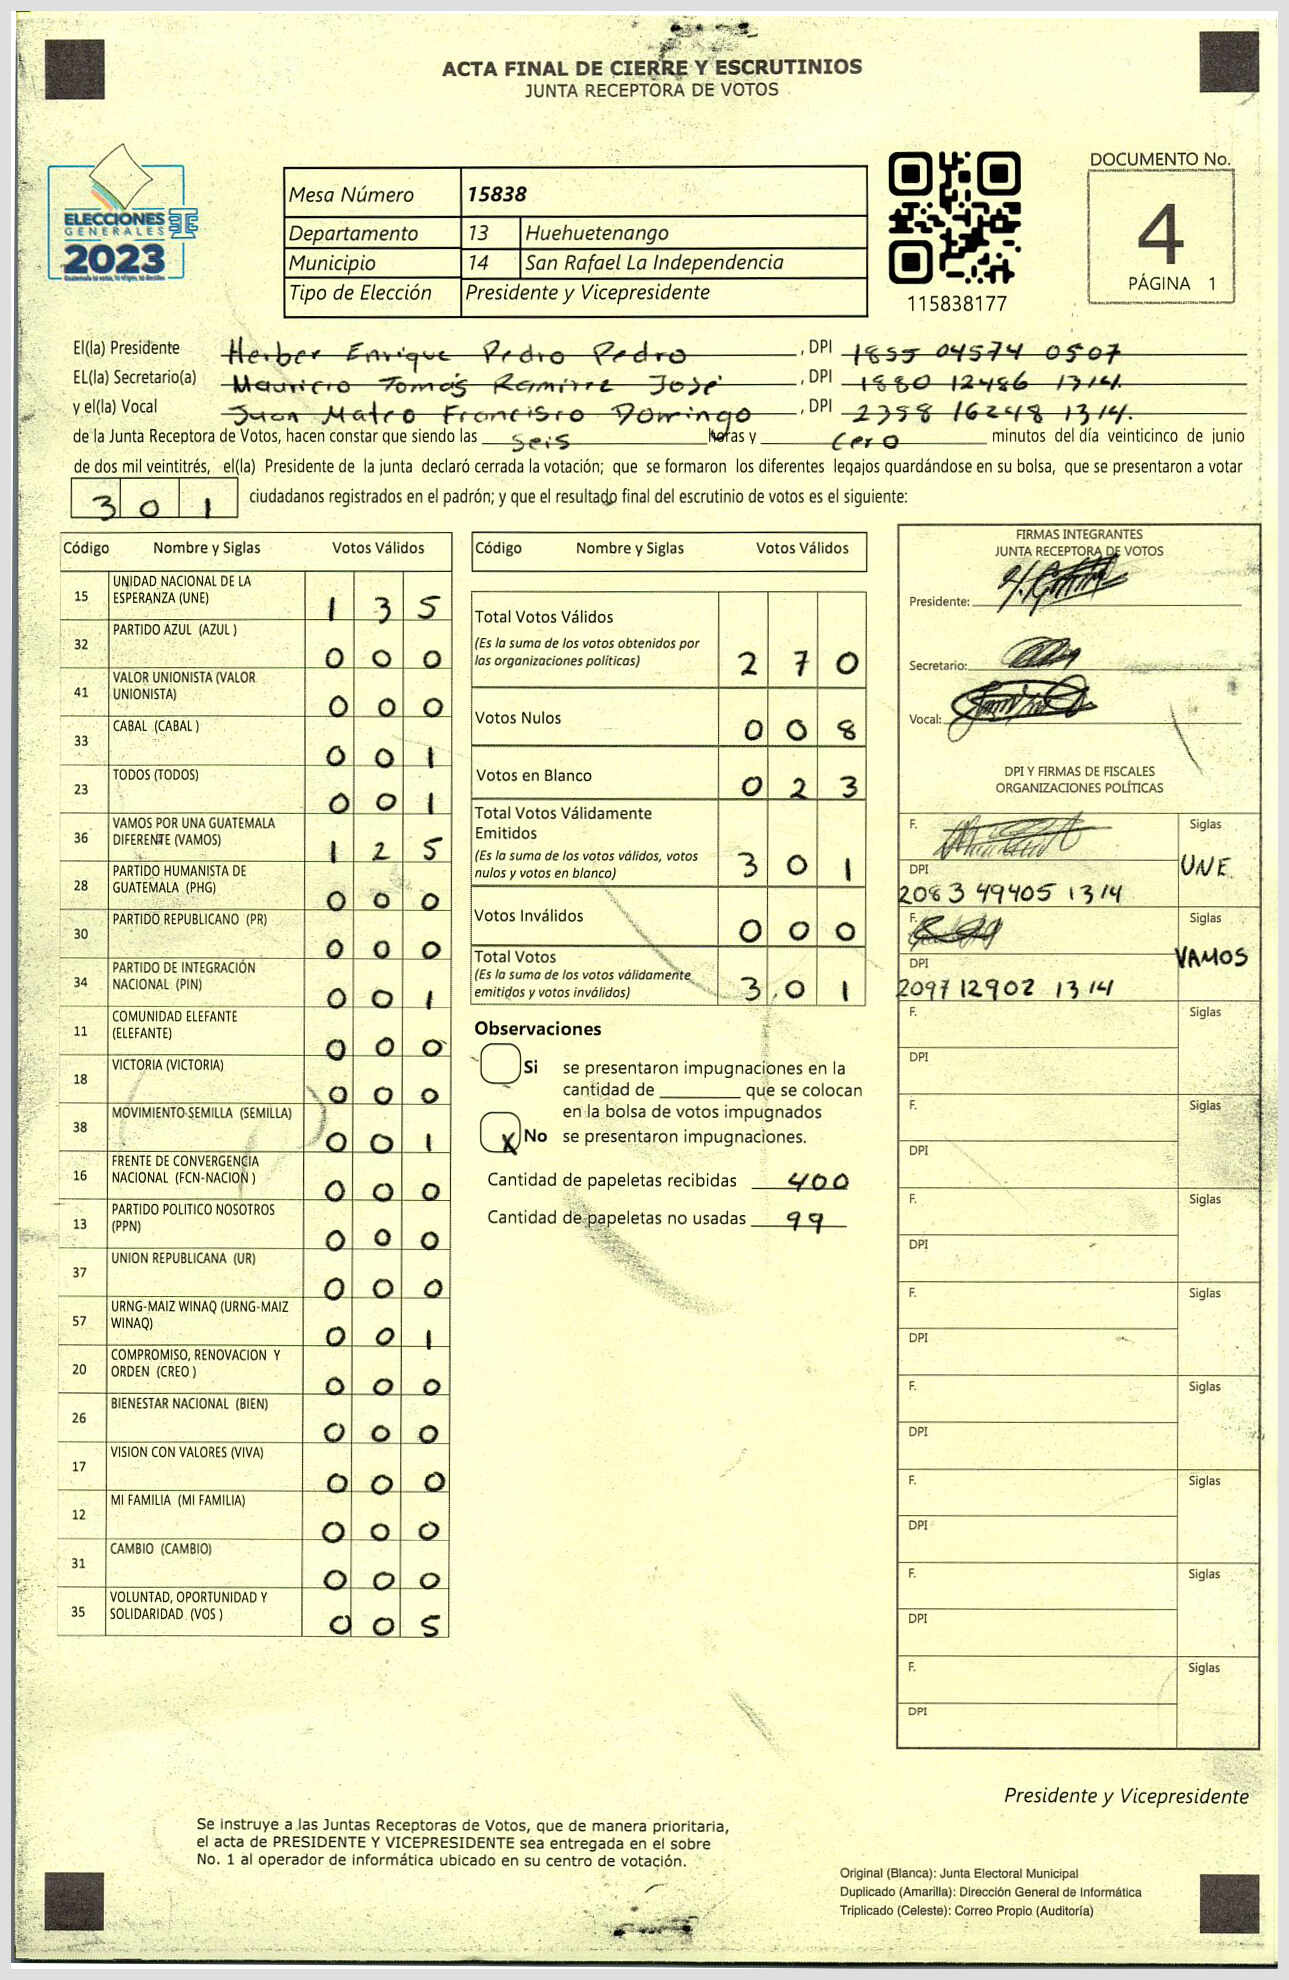 ACTA FINAL DE CIERRE Y ESCRUTINIOS
JUNTA RECEPTORA DE VOTOS
ELECCIONES
GENERALES
2023
Mesa Número 15838
Departamento 13 Huehuetenango
Municipio 14 San Rafael La Independencia
Tipo de Elección Presidente y Vicepresidente
115838177
DOCUMENTO No.
4
PÁGINA 1
El(la) Presidente Herber Enrique Pedro Pedro , DPI 1855 04574 0507
EL(la) Secretario(a) Mauricio Tomás Ramirez José , DPI 1880 12486 1314.
y el(la) Vocal Juan Mateo Francisco Domingo , DPI 2398 16248 1314.
de la Junta Receptora de Votos, hacen constar que siendo las seis horas y cero minutos del día veinticinco de junio
de dos mil veintitrés, el(la) Presidente de la junta declaró cerrada la votación; que se formaron los diferentes legajos quardándose en su bolsa, que se presentaron a votar
301 ciudadanos registrados en el padrón; y que el resultado final del escrutinio de votos es el siguiente:
Código Nombre y Siglas Votos Válidos
15 UNIDAD NACIONAL DE LA
ESPERANZA (UNE) 1 3 5
32 PARTIDO AZUL (AZUL ) 0 0 0
41 VALOR UNIONISTA (VALOR
UNIONISTA) 0 0 0
33 CABAL (CABAL ) 0 0 1
23 TODOS (TODOS) 0 0 1
36 VAMOS POR UNA GUATEMALA
DIFERENTE (VAMOS) 1 2 5
28 PARTIDO HUMANISTA DE
GUATEMALA (PHG) 0 0 0
30 PARTIDO REPUBLICANO (PR) 0 0 0
34 PARTIDO DE INTEGRACIÓN
NACIONAL (PIN) 0 0 1
11 COMUNIDAD ELEFANTE
(ELEFANTE) 0 0 0
18 VICTORIA (VICTORIA) 0 0 0
38 MOVIMIENTO SEMILLA (SEMILLA) 0 0 1
16 FRENTE DE CONVERGENCIA
NACIONAL (FCN-NACION ) 0 0 0
13 PARTIDO POLITICO NOSOTROS
(PPN) 0 0 0
37 UNION REPUBLICANA (UR) 0 0 0
57 URNG-MAIZ WINAQ (URNG-MAIZ
WINAQ) 0 0 1
20 COMPROMISO, RENOVACION Y
ORDEN (CREO ) 0 0 0
26 BIENESTAR NACIONAL (BIEN) 0 0 0
17 VISION CON VALORES (VIVA) 0 0 0
12 MI FAMILIA (MI FAMILIA) 0 0 0
31 CAMBIO (CAMBIO) 0 0 0
35 VOLUNTAD, OPORTUNIDAD Y
SOLIDARIDAD (VOS ) 0 0 5
Código Nombre y Siglas Votos Válidos
Total Votos Válidos
(Es la suma de los votos obtenidos por
las organizaciones políticas) 2 7 0
Votos Nulos 0 0 8
Votos en Blanco 0 2 3
Total Votos Válidamente
Emitidos
(Es la suma de los votos válidos, votos
nulos y votos en blanco) 3 0 1
Votos Inválidos 0 0 0
Total Votos
(Es la suma de los votos válidamente
emitidos y votos inválidos) 3 0 1
Observaciones
Si se presentaron impugnaciones en la
cantidad de ________ que se colocan
en la bolsa de votos impugnados
X No se presentaron impugnaciones.
Cantidad de papeletas recibidas 400
Cantidad de papeletas no usadas 99
FIRMAS INTEGRANTES
JUNTA RECEPTORA DE VOTOS
Presidente:
Secretario:
Vocal:
DPI Y FIRMAS DE FISCALES
ORGANIZACIONES POLÍTICAS
F. Siglas
UNE
DPI
2083 49405 1314
F. Siglas
VAMOS
DPI
2097 12902 1314
F. Siglas
DPI
F. Siglas
DPI
F. Siglas
DPI
F. Siglas
DPI
F. Siglas
DPI
F. Siglas
DPI
F. Siglas
DPI
F. Siglas
DPI
Presidente y Vicepresidente
Se instruye a las Juntas Receptoras de Votos, que de manera prioritaria,
el acta de PRESIDENTE Y VICEPRESIDENTE sea entregada en el sobre
No. 1 al operador de informática ubicado en su centro de votación.
Original (Blanca): Junta Electoral Municipal
Duplicado (Amarilla): Dirección General de Informática
Triplicado (Celeste): Correo Propio (Auditoría)